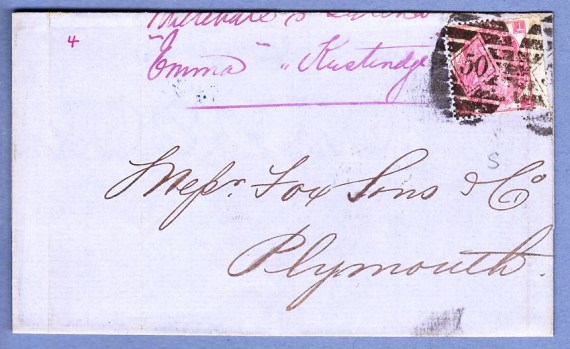 4
"Emma" „ Kustendge
50
S
Messrs. Fox Sons & Co
Plymouth.